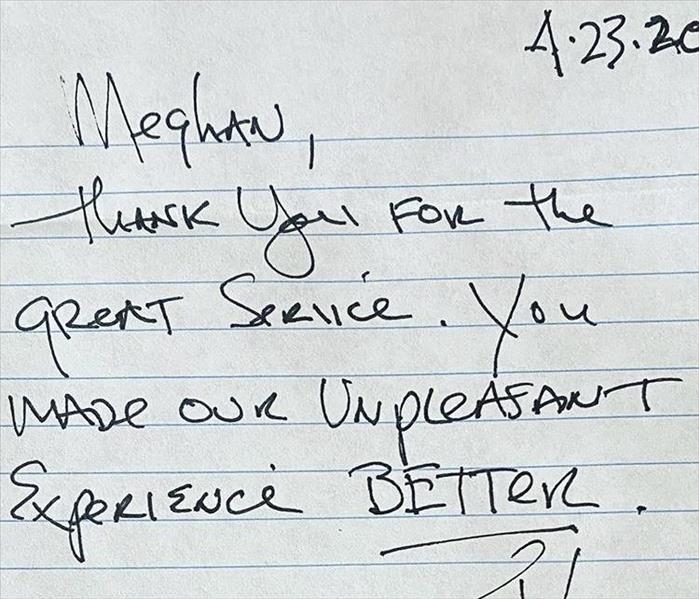 4.23.20
Meghan,
Thank You FOR the
GREAT Service. You
MADE OUR UNPLEASANT
EXPERIENCE BETTER.